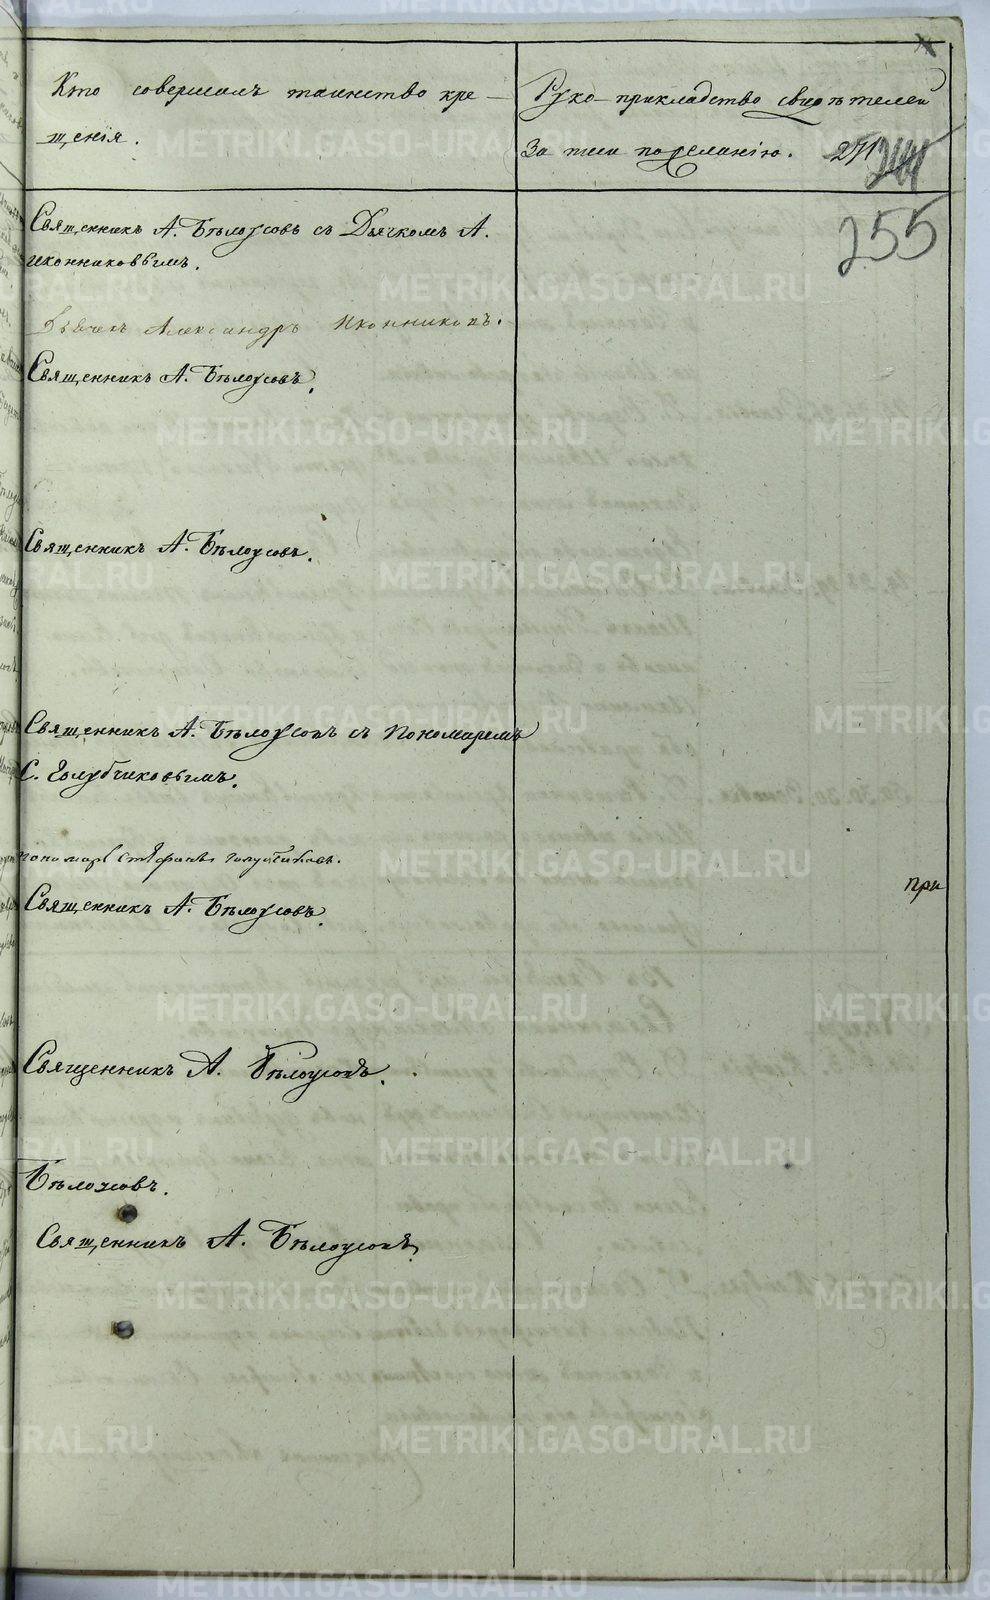 Кто совершилъ таинство кре-
щенія.
Руко-прикладство свидѣтелей
За писи по желанію. 271
255
Священникъ А. Бѣлоусовъ съ Дьячкомъ А.
Иконниковымъ.
Дьячекъ Александръ Иконниковъ.
Священникъ А. Бѣлоусовъ.
Священникъ А. Бѣлоусовъ.
Священникъ А. Бѣлоусовъ съ Пономаремъ
С. Голубчиковымъ.
пономарь Стефанъ Голубчиковъ.
Священникъ А. Бѣлоусовъ.
при
Священникъ А. Бѣлоусовъ.
Бѣлоусовъ.
Священникъ А. Бѣлоусовъ.
METRIKI.GASO-URAL.RU